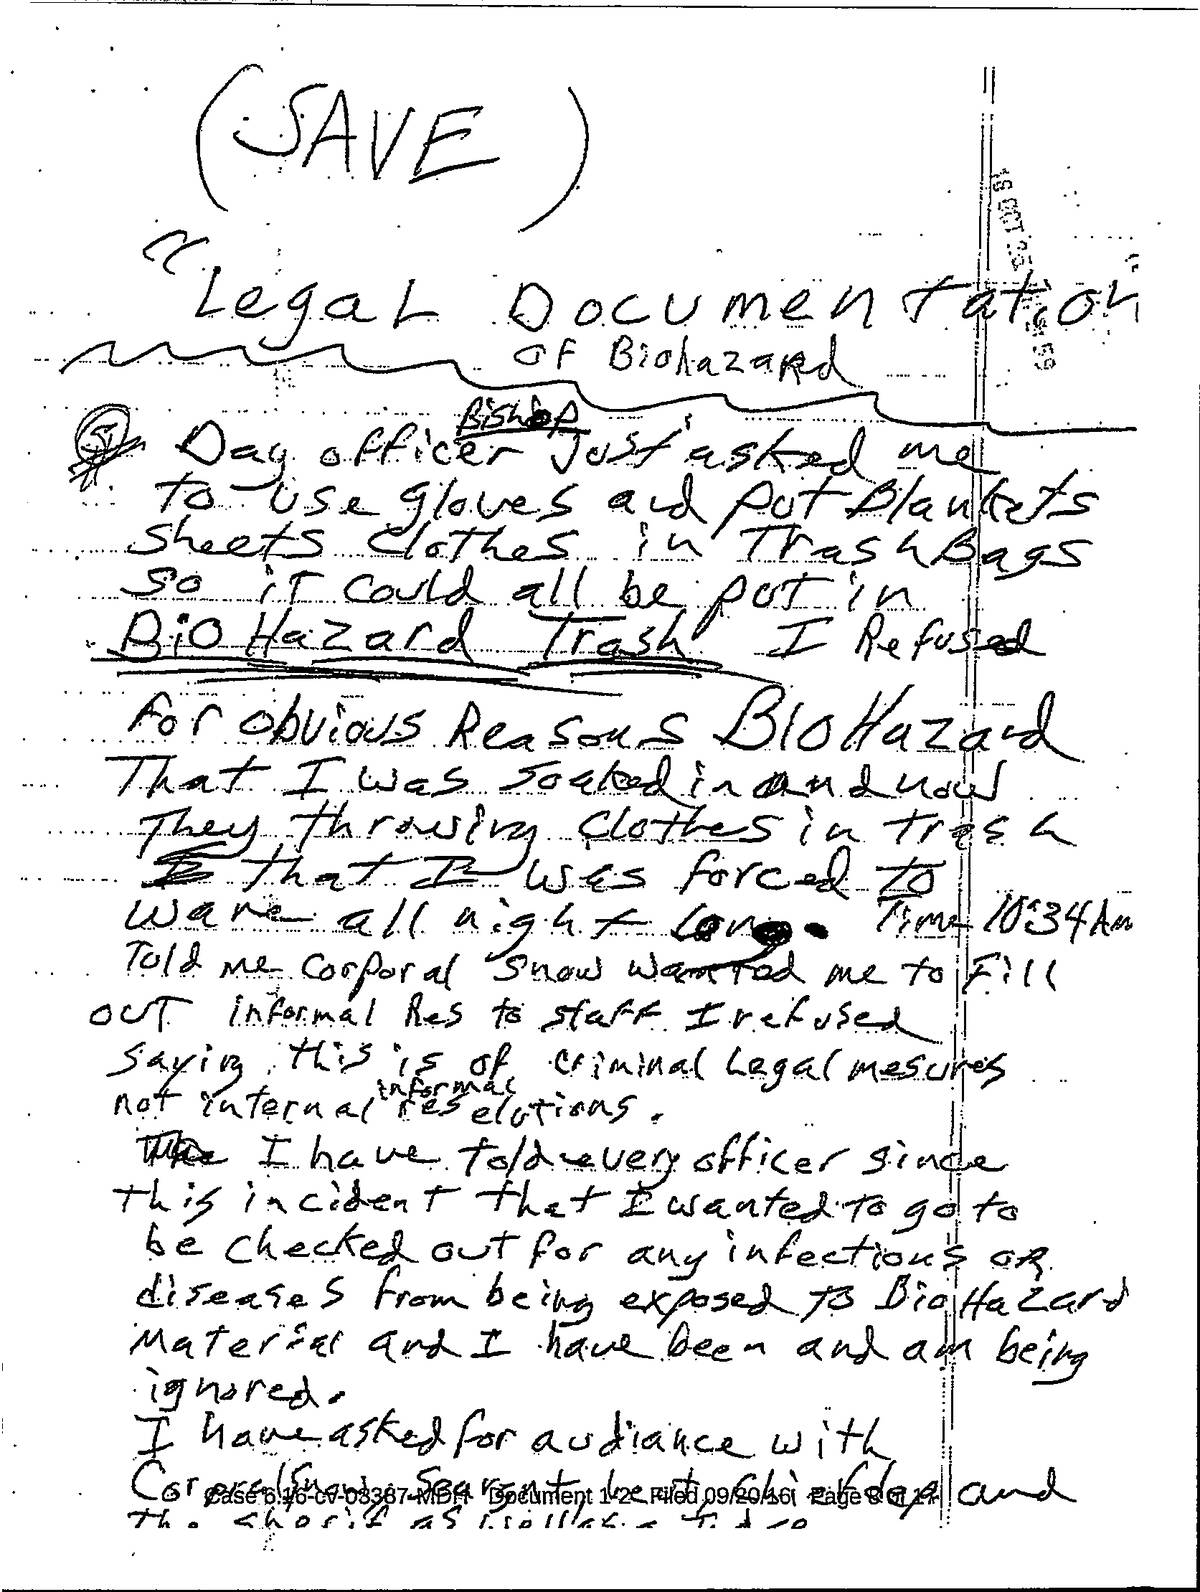 (SAVE)
"Legal Documentation
OF Biohazard
Bishop
Day officer Just asked me
to use gloves and put Blankets
Sheets Clothes in Trash Bags
So it could all be put in
BioHazard Trash I Refused
for obvious Reasons BioHazard
That I was soaked in and now
They throwing Clothes in trash
that I was forced to
ware all night long. Time 10:34 Am
Told me Corporal Snow wanted me to Fill
OUT informal Res to staff I refused
saying this is of criminal Legal mesures
informal
not internal reselutions.
I have told every officer since
this incident that I wanted to go to
be checked out for any infections OR
diseases from being exposed to BioHazard
Material and I have been and am being
ignored.
I have asked for audiance with
Corporal Snow and
Case 6:16-cv-03387-MDH Document 1-2 Filed 09/20/16 Page